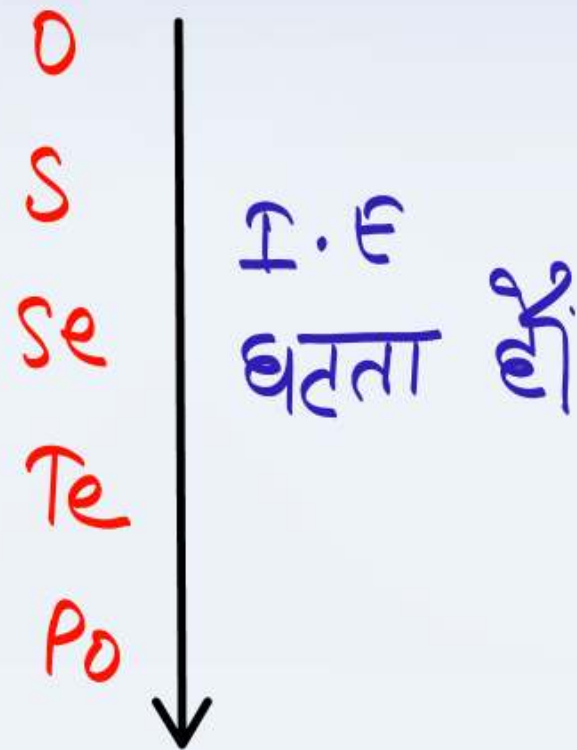 O
S
Se
Te
Po
I.E
घटता हैं